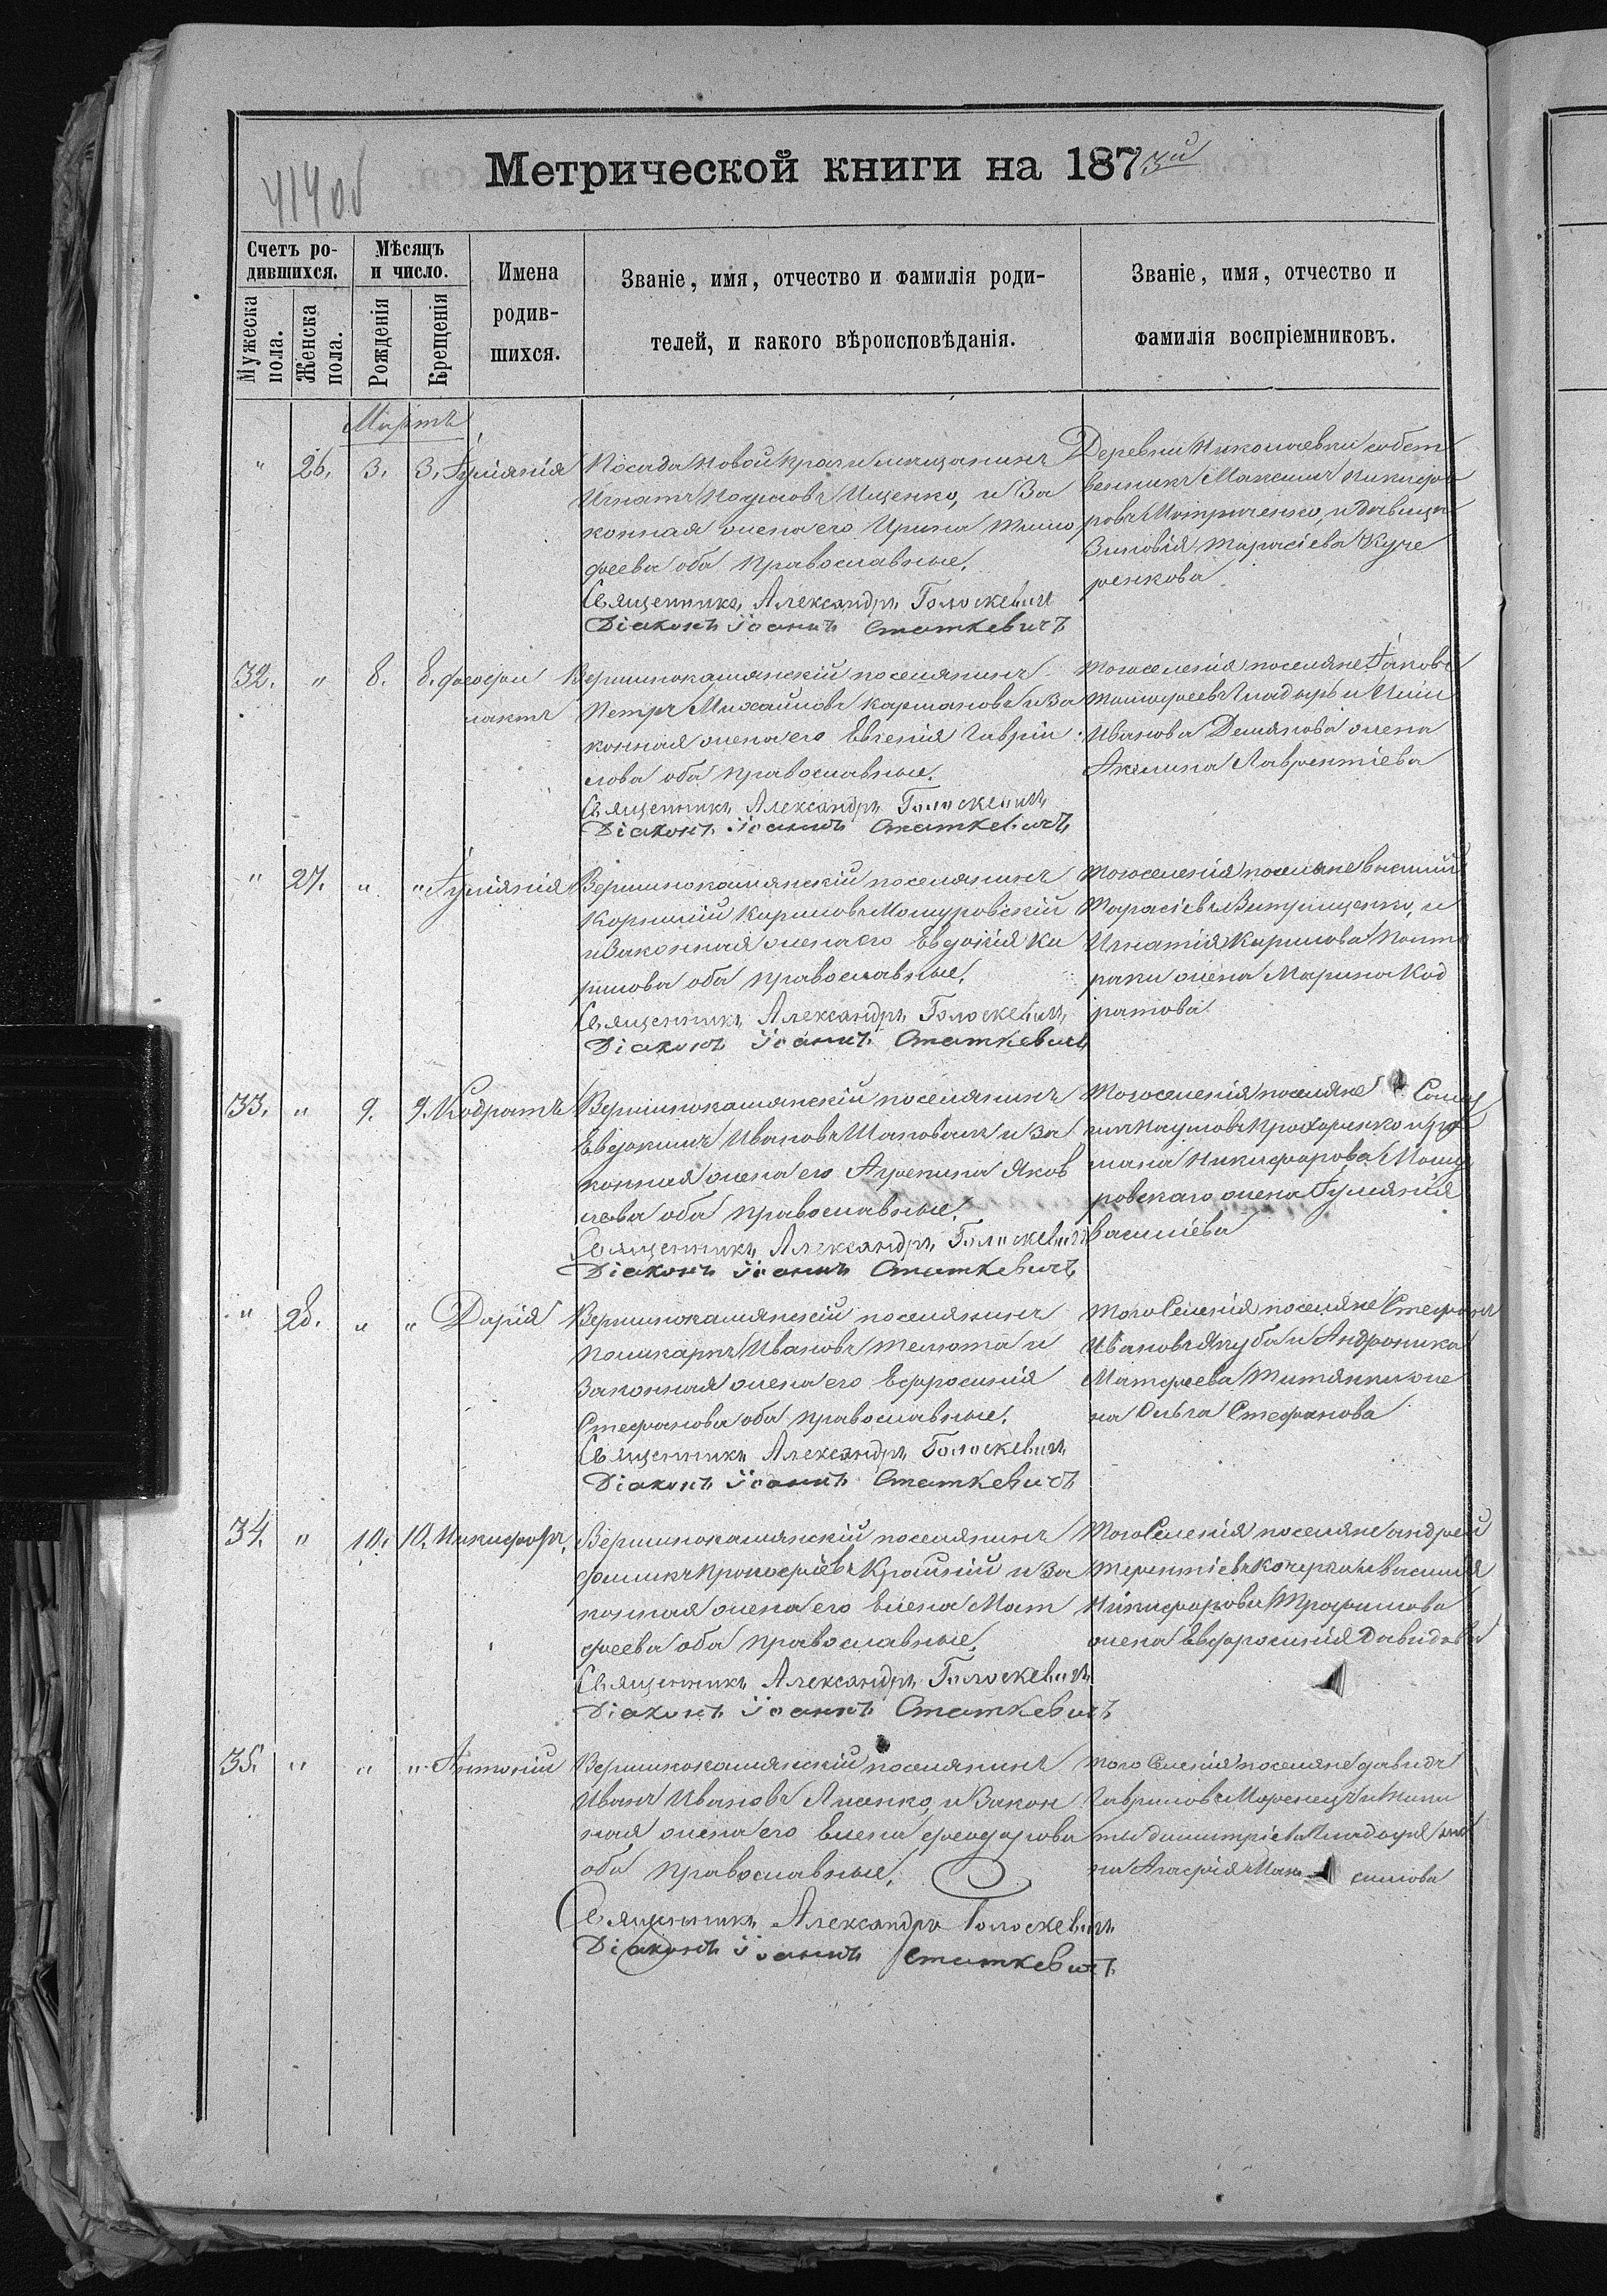 414 об
Метрической книги на 1873й
Счетъ ро-
дившихся.
Мужеска пола.
Женска пола.
Мѣсяцъ
и число.
Рожденія
Крещенія
Имена
родив-
шихся.
Званіе, имя, отчество и фамилія роди-
телей, и какого вѣроисповѣданія.
Званіе, имя, отчество и
фамилія воспріемниковъ.
Мартъ
" 26. 3. 3. Іуліянія
Посада Новой Праги мещанинъ
Игнатъ Наумовъ Ищенко, и за
конная жена его Ирина Тимо
феева оба православные.
Священникъ Александръ Голоскевич
Діаконъ Іоаннъ Статкевичъ
Деревни Николаевки собст
венникъ Максимъ Никифо
ровъ Митриченко, и девица
Зиновія Тарасіева Куче
ренкова
32. " 8. 8. Феофи
лактъ
Вершинокамянскій поселянинъ
Петръ Михайловъ Кармановъ и за
конная жена его Евгенія Гаврии
лова оба православные.
Священникъ Александръ Голоскевичъ
Діаконъ Іоаннъ Статкевичъ
Тогоселенія поселяне Іаковъ
Тимофеевъ Гладырь и
Иванова Демянова жена
Акилина Лаврентіева
" 27. " " Іуліянія
Вершинокамянскій поселянинъ
Корнилій Кириловъ Мошуровскій
и законная жена его Евдокія Ки
рилова оба православные.
Священникъ Александръ Голоскевичъ
Діаконъ Іоаннъ Статкевичъ
Тогоселенія поселяне
Тарасіевъ и
Игнатія Кирилова
жена Марина Код
ратова
33. " 9. 9. Кодратъ
Вершинокамянскій поселянинъ
Евдокимъ Ивановъ Шаповалъ и за
конная жена его Агрепина Яков
лева оба православные.
Священникъ Александръ Голоскевичъ
Діаконъ Іоаннъ Статкевичъ
Тогоселенія поселяне
Наумовъ Прохоренко и
Никифорова Мошу
ровскаго жена Іуліянія
Василіева
" 28. " " Дарія
Вершинокамянскій поселянинъ
Поликарпъ Ивановъ Телюта и
законная жена его Ефросинія
Стефанова оба православные.
Священникъ Александръ Голоскевичъ
Діаконъ Іоаннъ Статкевичъ
Того Селенія поселяне Стефанъ
Ивановъ Якуба и Андроника
Матфеева жe
на Ольга Стефанова
34. " 10. 10. Никифоръ.
Вершинокамянскій поселянинъ
Филипъ Прокофіевъ Крайній и за
конная жена его Елена Мат
феева оба православные.
Священникъ Александръ Голоскевичъ
Діаконъ Іоаннъ Статкевичъ
Того Селенія поселяне Андрей
Терентіевъ Кочерга и Василія
Никифорова Трофимова
жена Евфоросинія Давидова
35. " " " Антоній
Вершинокамянскій поселянинъ
Иванъ Ивановъ Лисенко, и закон
ная жена его Елена Феодорова
оба православные.
Священникъ Александръ Голоскевичъ
Діаконъ Іоаннъ Статкевичъ
Того Селенія поселяне Давидъ
Гавриловъ Моренецъ и Ники
ты Димитріева Гладыря же
на Агафія Мак симова